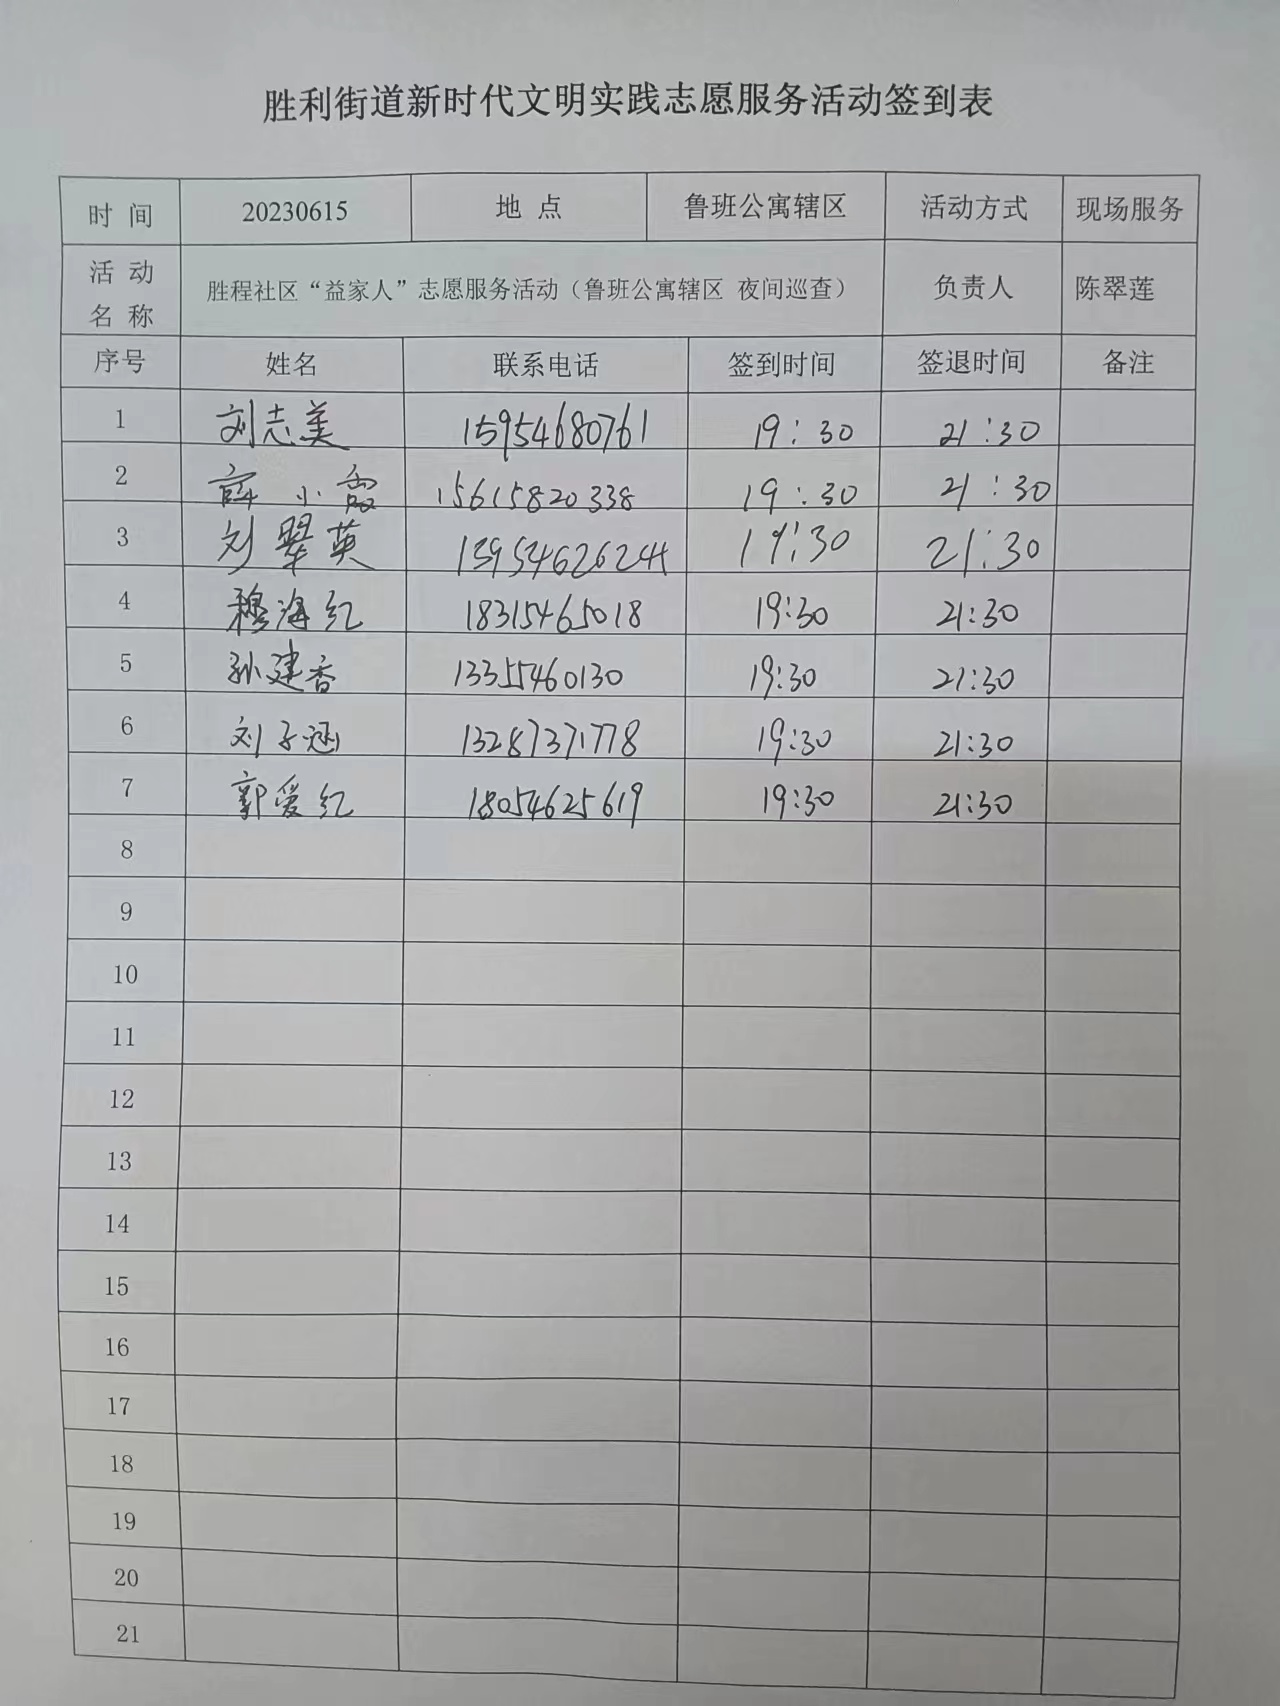 胜利街道新时代文明实践志愿服务活动签到表
时 间 20230615 地 点 鲁班公寓辖区 活动方式 现场服务
活 动
名 称 胜程社区“益家人”志愿服务活动（鲁班公寓辖区 夜间巡查） 负责人 陈翠莲
序号 姓名 联系电话 签到时间 签退时间 备注
1 刘志美 15954680761 19:30 21:30
2 薛小霞 15615820338 19:30 21:30
3 刘翠英 19:30 21:30
4 穆海红 18315465018 19:30 21:30
5 孙建香 13355460130 19:30 21:30
6 刘子涵 13287371778 19:30 21:30
7 郭爱红 18054625619 19:30 21:30
8
9
10
11
12
13
14
15
16
17
18
19
20
21